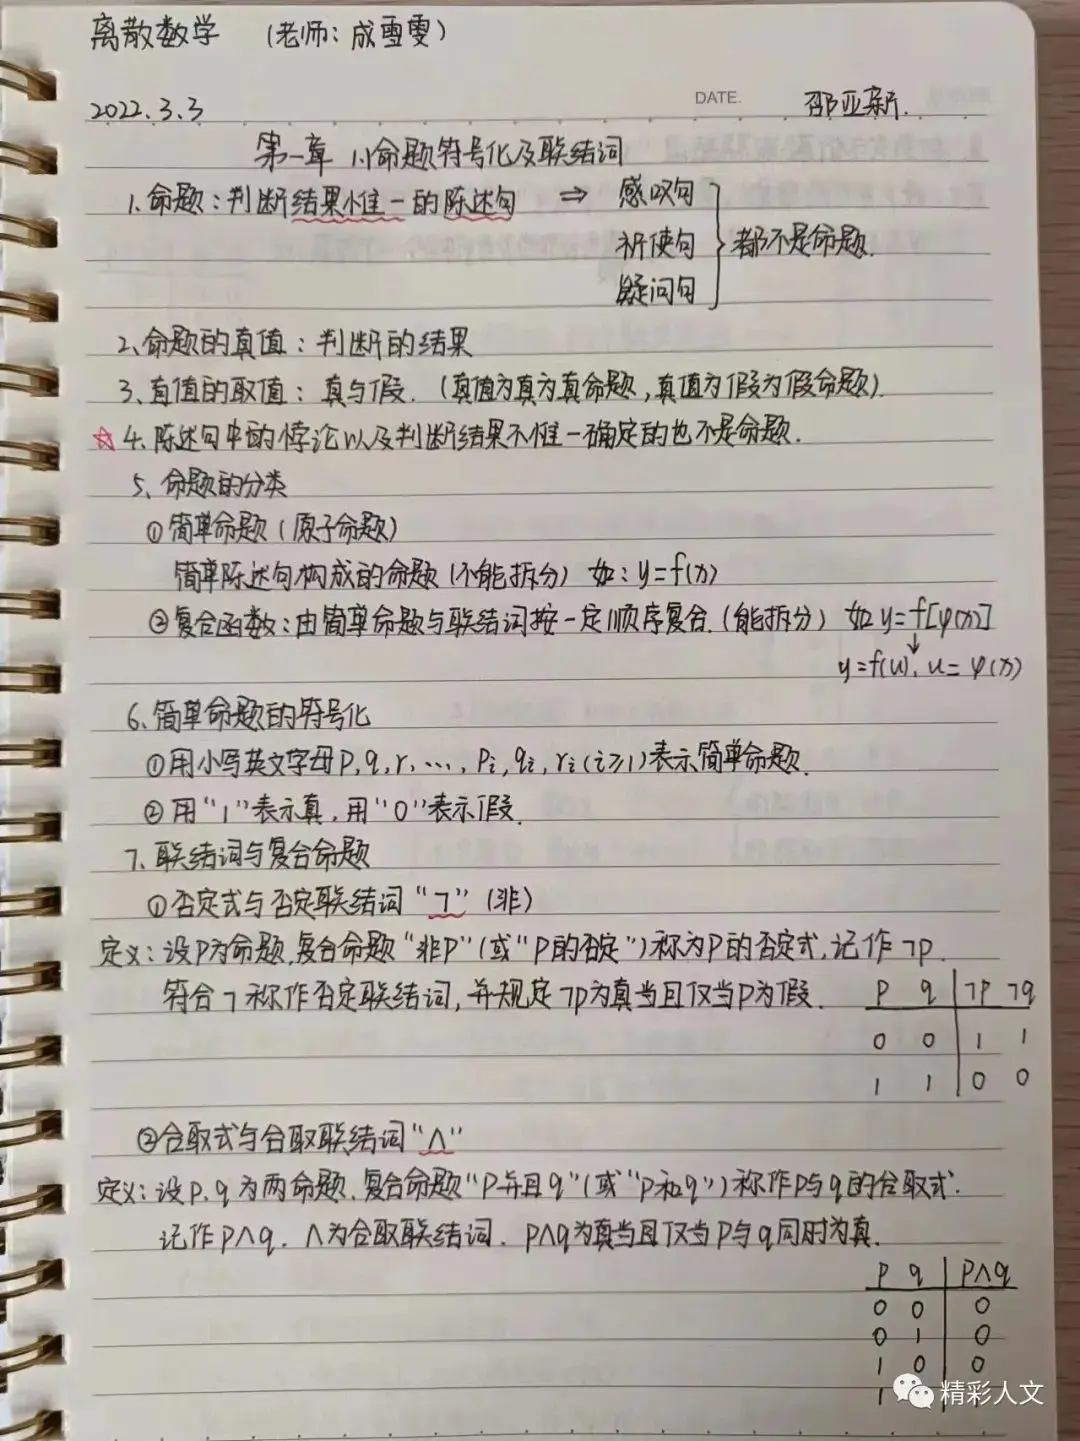 离散数学 (老师:成雪雯)
2022.3.3 DATE. 邵亚新.
第一章 1.1命题符号化及联结词
1.命题:判断结果惟一的陈述句 ⇒ 感叹句
祈使句 都不是命题.
疑问句
2、命题的真值:判断的结果
3、真值的取值:真与假.(真值为真为真命题,真值为假为假命题).
☆4、陈述句中的悖论以及判断结果不惟一确定的也不是命题.
5、命题的分类
①简单命题(原子命题)
简单陈述句构成的命题(不能拆分) 如:y=f(x)
②复合函数:由简单命题与联结词按一定顺序复合.(能拆分) 如y=f[φ(x)]
↓
y=f(u), u=φ(x)
6、简单命题的符号化
①用小写英文字母p,q,r,…,pi,qi,ri(i≥1)表示简单命题.
②用“1”表示真,用“0”表示假.
7、联结词与复合命题
①否定式与否定联结词“¬”(非)
定义:设P为命题,复合命题“非P”(或“P的否定”)称为P的否定式,记作¬p.
符合¬称作否定联结词,并规定¬p为真当且仅当P为假.
p q ¬p ¬q
0 0 1 1
1 1 0 0
②合取式与合取联结词“∧”
定义:设p,q为两命题,复合命题“p并且q”(或“p和q”)称作p与q的合取式.
记作p∧q. ∧为合取联结词. p∧q为真当且仅当p与q同时为真.
p q p∧q
0 0 0
0 1 0
1 0 0
1
精彩人文